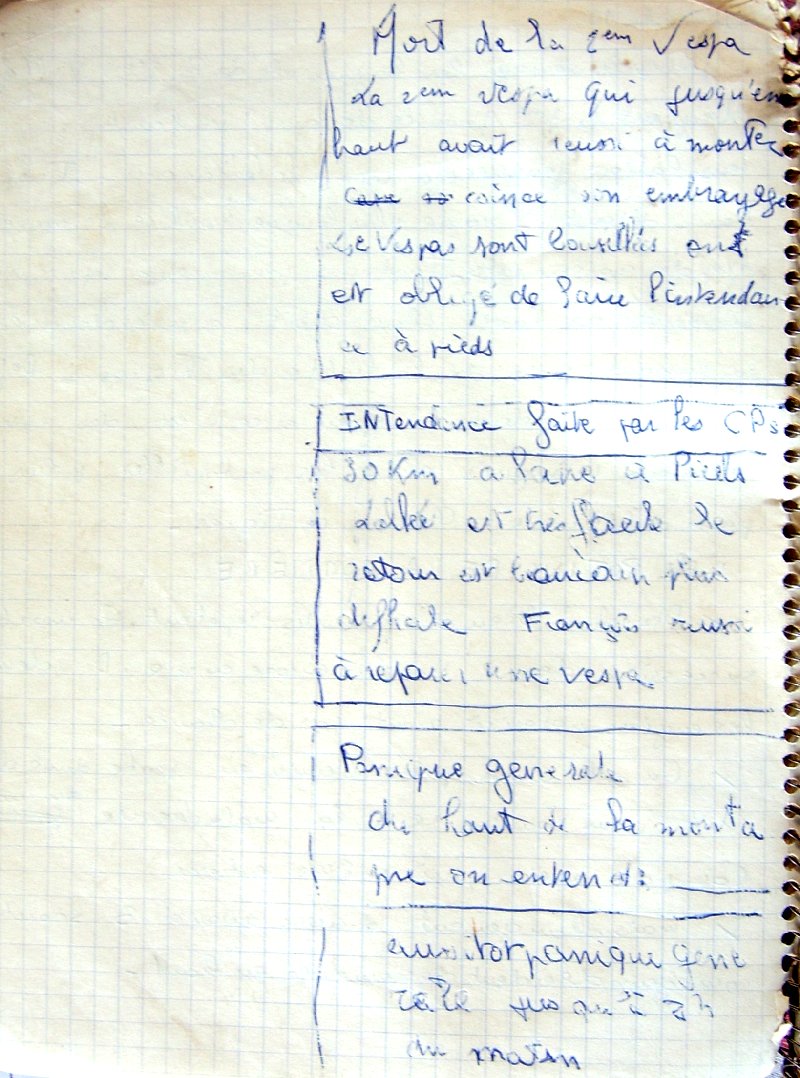 Mort de la 2em Vespa
La 2em vespa qui jusqu'en
haut avait reussi à monter
coince son embrayage
Vespas sont et
est obligé de faire l'intendan
à pieds
INTendance faite par les CPs
30 Km a faire à Pieds
est très facile le
retour est plus
François reussi
à reparer une vespa
Panique generale
du haut de la monta
gne on entend:
aussitot panique gene
rale jusqu'à 2h
du matin